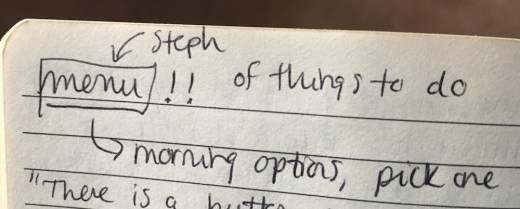 Steph
menu!! of things to do
morning options, pick one
"There is a